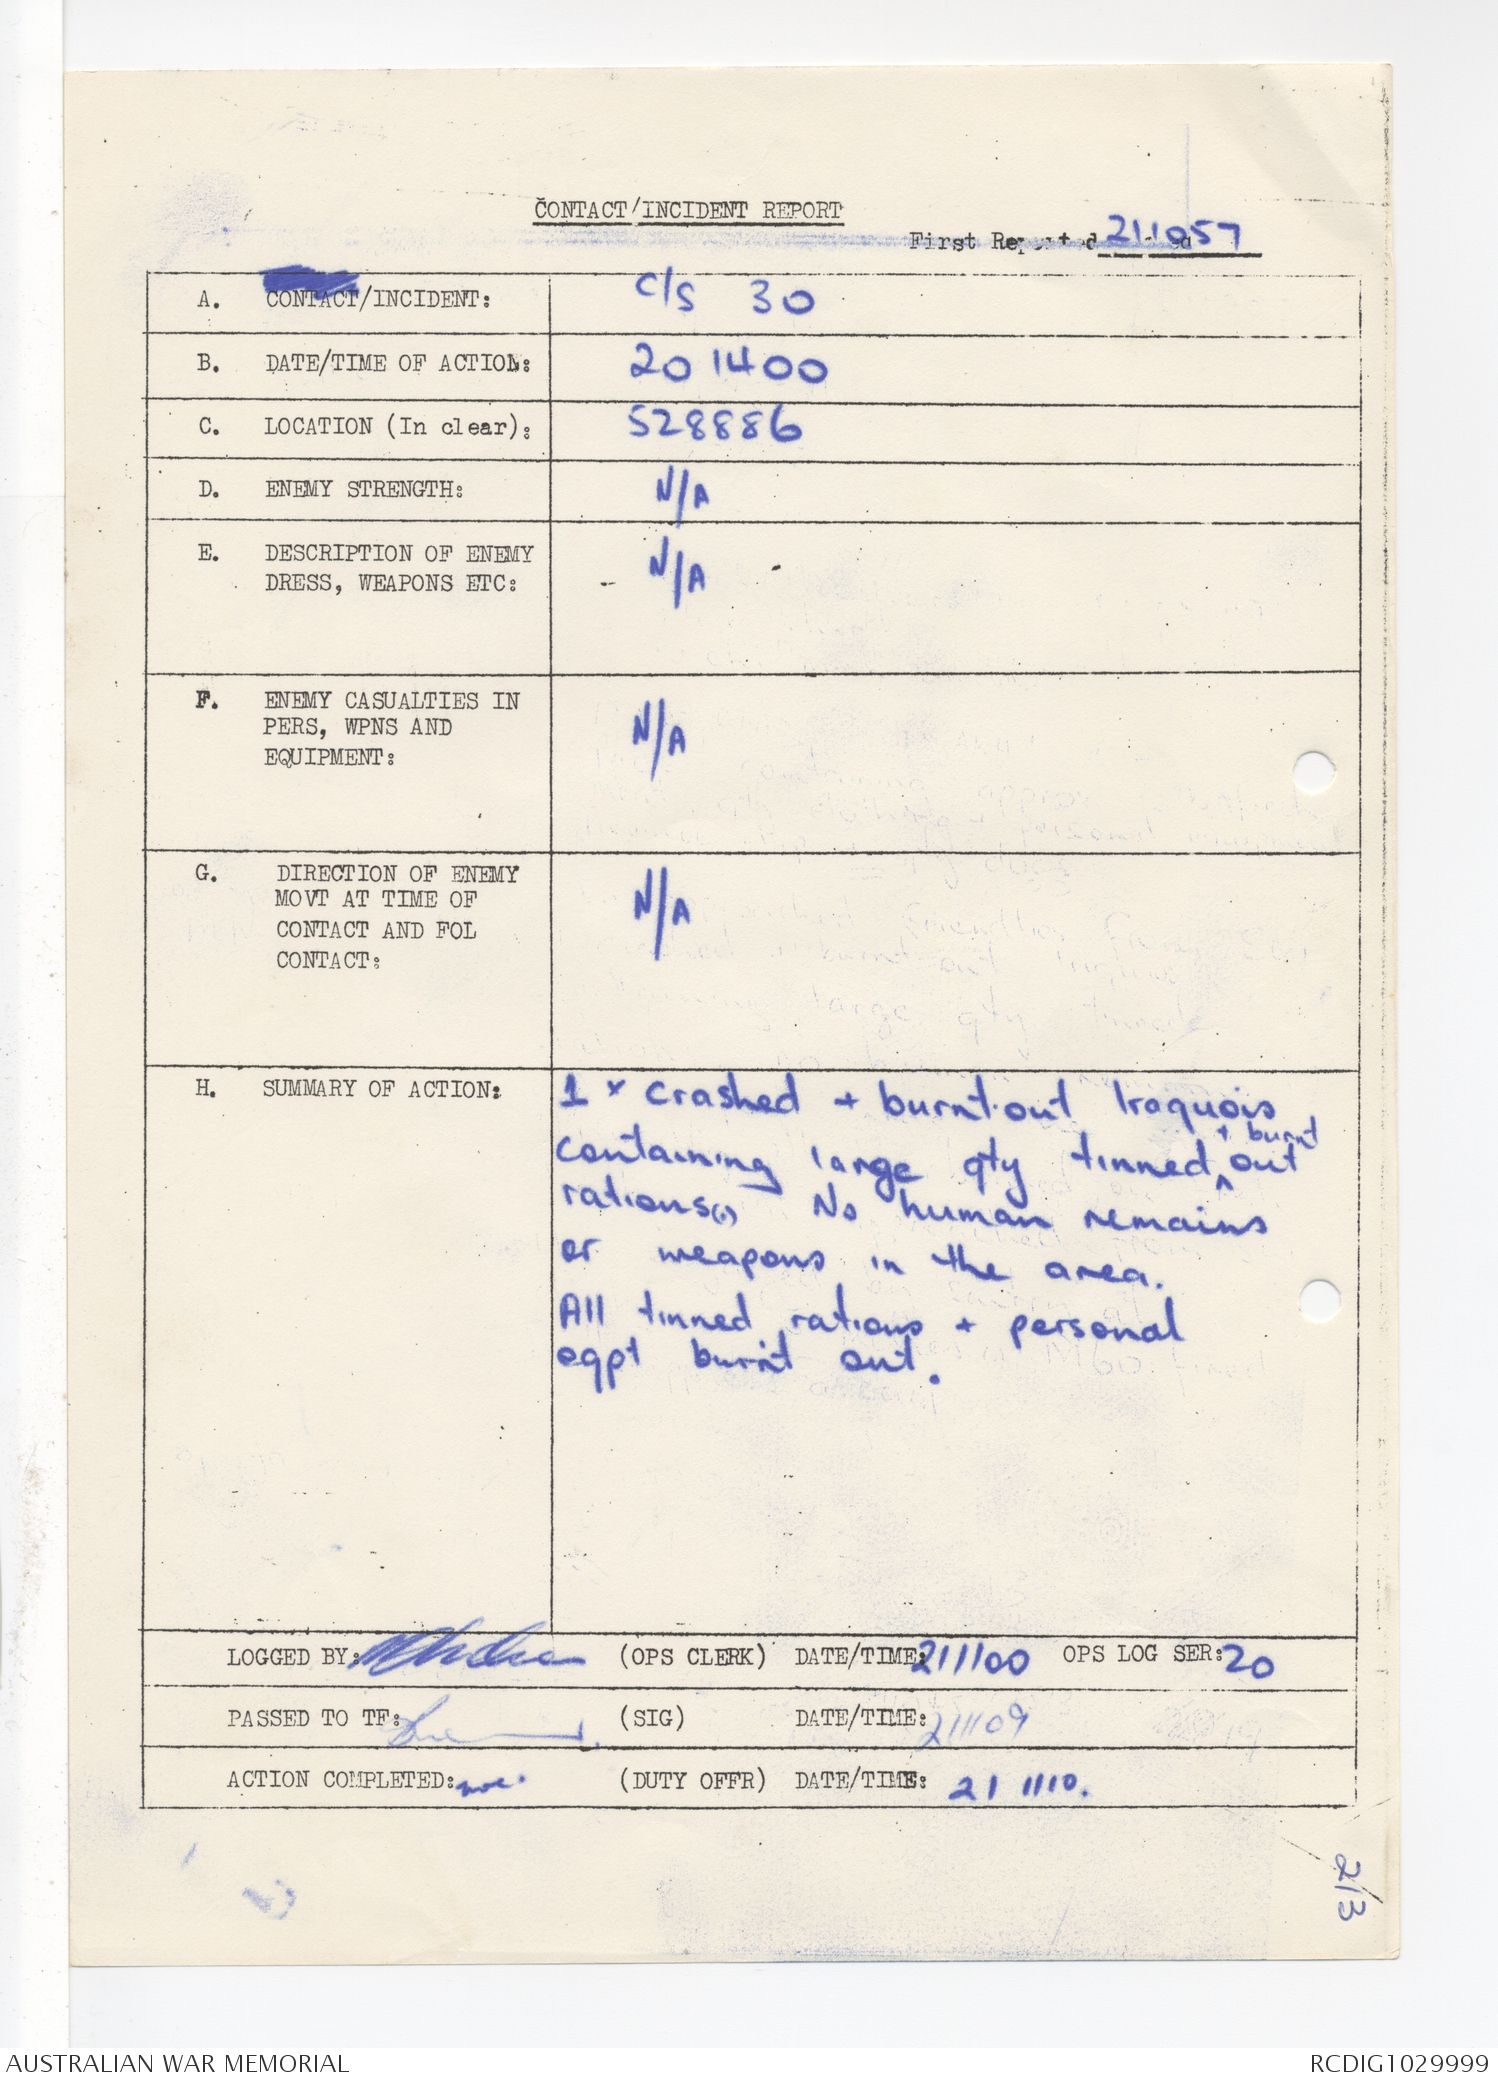 CONTACT/INCIDENT REPORT
First Reported 211057
A. CONTACT/INCIDENT: C/S 30
B. DATE/TIME OF ACTION: 201400
C. LOCATION (In clear): 528886
D. ENEMY STRENGTH: N/A
E. DESCRIPTION OF ENEMY N/A
DRESS, WEAPONS ETC:
F. ENEMY CASUALTIES IN
PERS, WPNS AND N/A
EQUIPMENT:
G. DIRECTION OF ENEMY
MOVT AT TIME OF N/A
CONTACT AND FOL
CONTACT:
H. SUMMARY OF ACTION: 1 x crashed + burnt out Iraquois
+ burnt
containing large qty tinned ^ out
rations(.) No human remains
or weapons in the area.
All tinned rations + personal
eqpt burnt out.
LOGGED BY: (OPS CLERK) DATE/TIME: 211100 OPS LOG SER: 20
PASSED TO TF: (SIG) DATE/TIME: 211109
ACTION COMPLETED: (DUTY OFFR) DATE/TIME: 21 1110.
2/3
AUSTRALIAN WAR MEMORIAL
RCDIG1029999